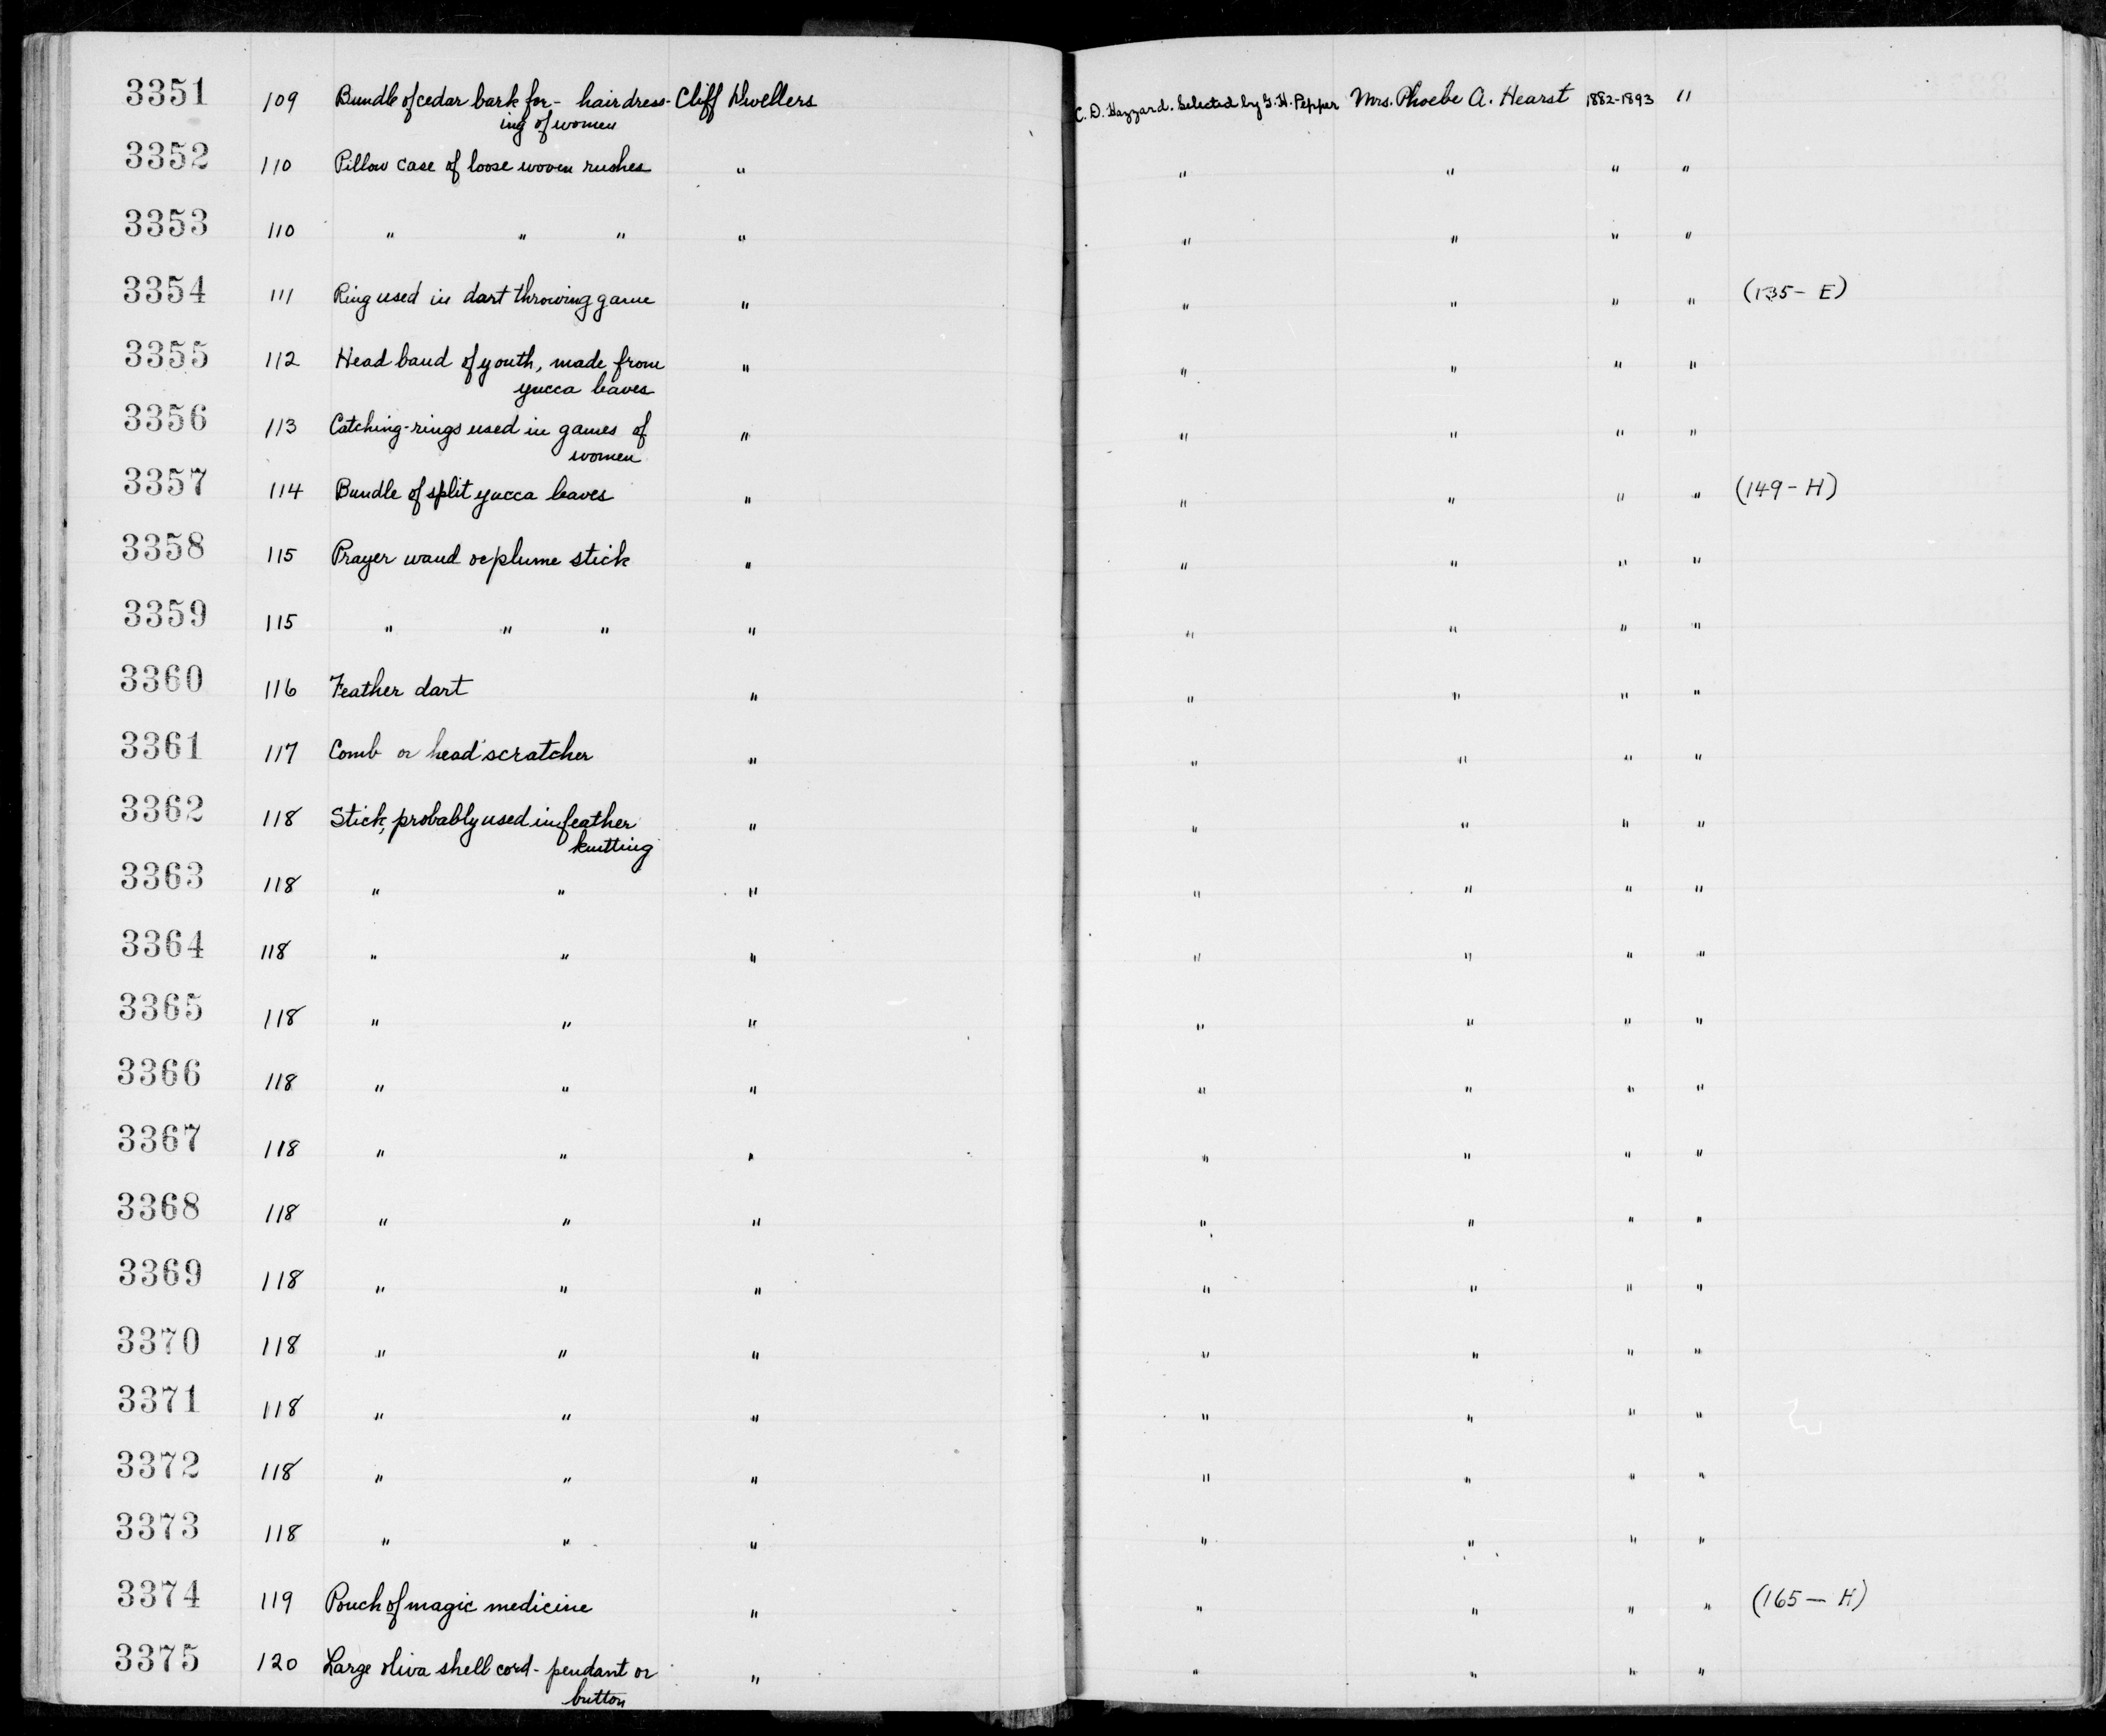 3351 109 Bundle of cedar bark for - hairdress- Cliff Dwellers C. D. Hazzard. Selected by G. H. Pepper Mrs. Phoebe A. Hearst 1882-1893 11
ing of women
3352 110 Pillow case of loose woven rushes " " " " "
3353 110 " " " " " " " "
3354 111 Ring used in dart throwing game " " " " " (135- E)
3355 112 Head band of youth, made from " " " " "
yucca leaves
3356 113 Catching-rings used in games of " " " " "
women
3357 114 Bundle of split yucca leaves " " " " " (149- H)
3358 115 Prayer wand or plume stick " " " " "
3359 115 " " " " " " " "
3360 116 Feather dart " " " " "
3361 117 Comb or head scratcher " " " " "
3362 118 Stick, probably used in feather " " " " "
knitting
3363 118 " " " " " " "
3364 118 " " " " " " "
3365 118 " " " " " " "
3366 118 " " " " " " "
3367 118 " " " " " " "
3368 118 " " " " " " "
3369 118 " " " " " " "
3370 118 " " " " " " "
3371 118 " " " " " " "
3372 118 " " " " " " "
3373 118 " " " " " " "
3374 119 Pouch of magic medicine " " " " " (165 - H)
3375 120 Large oliva shell cord- pendant or " " " " "
button